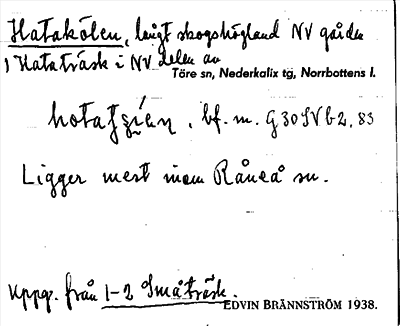 Hatakölen, långt skogshögland NV gården
1 Hataträsk i NV delen av
Töre sn, Nederkalix tg, Norrbottens l.
bf. m. G 30 SV b 2, 83
Ligger mest inom Råneå sn.
Uppg. från 1-2 Småträsk.
EDVIN BRÄNNSTRÖM 1938.